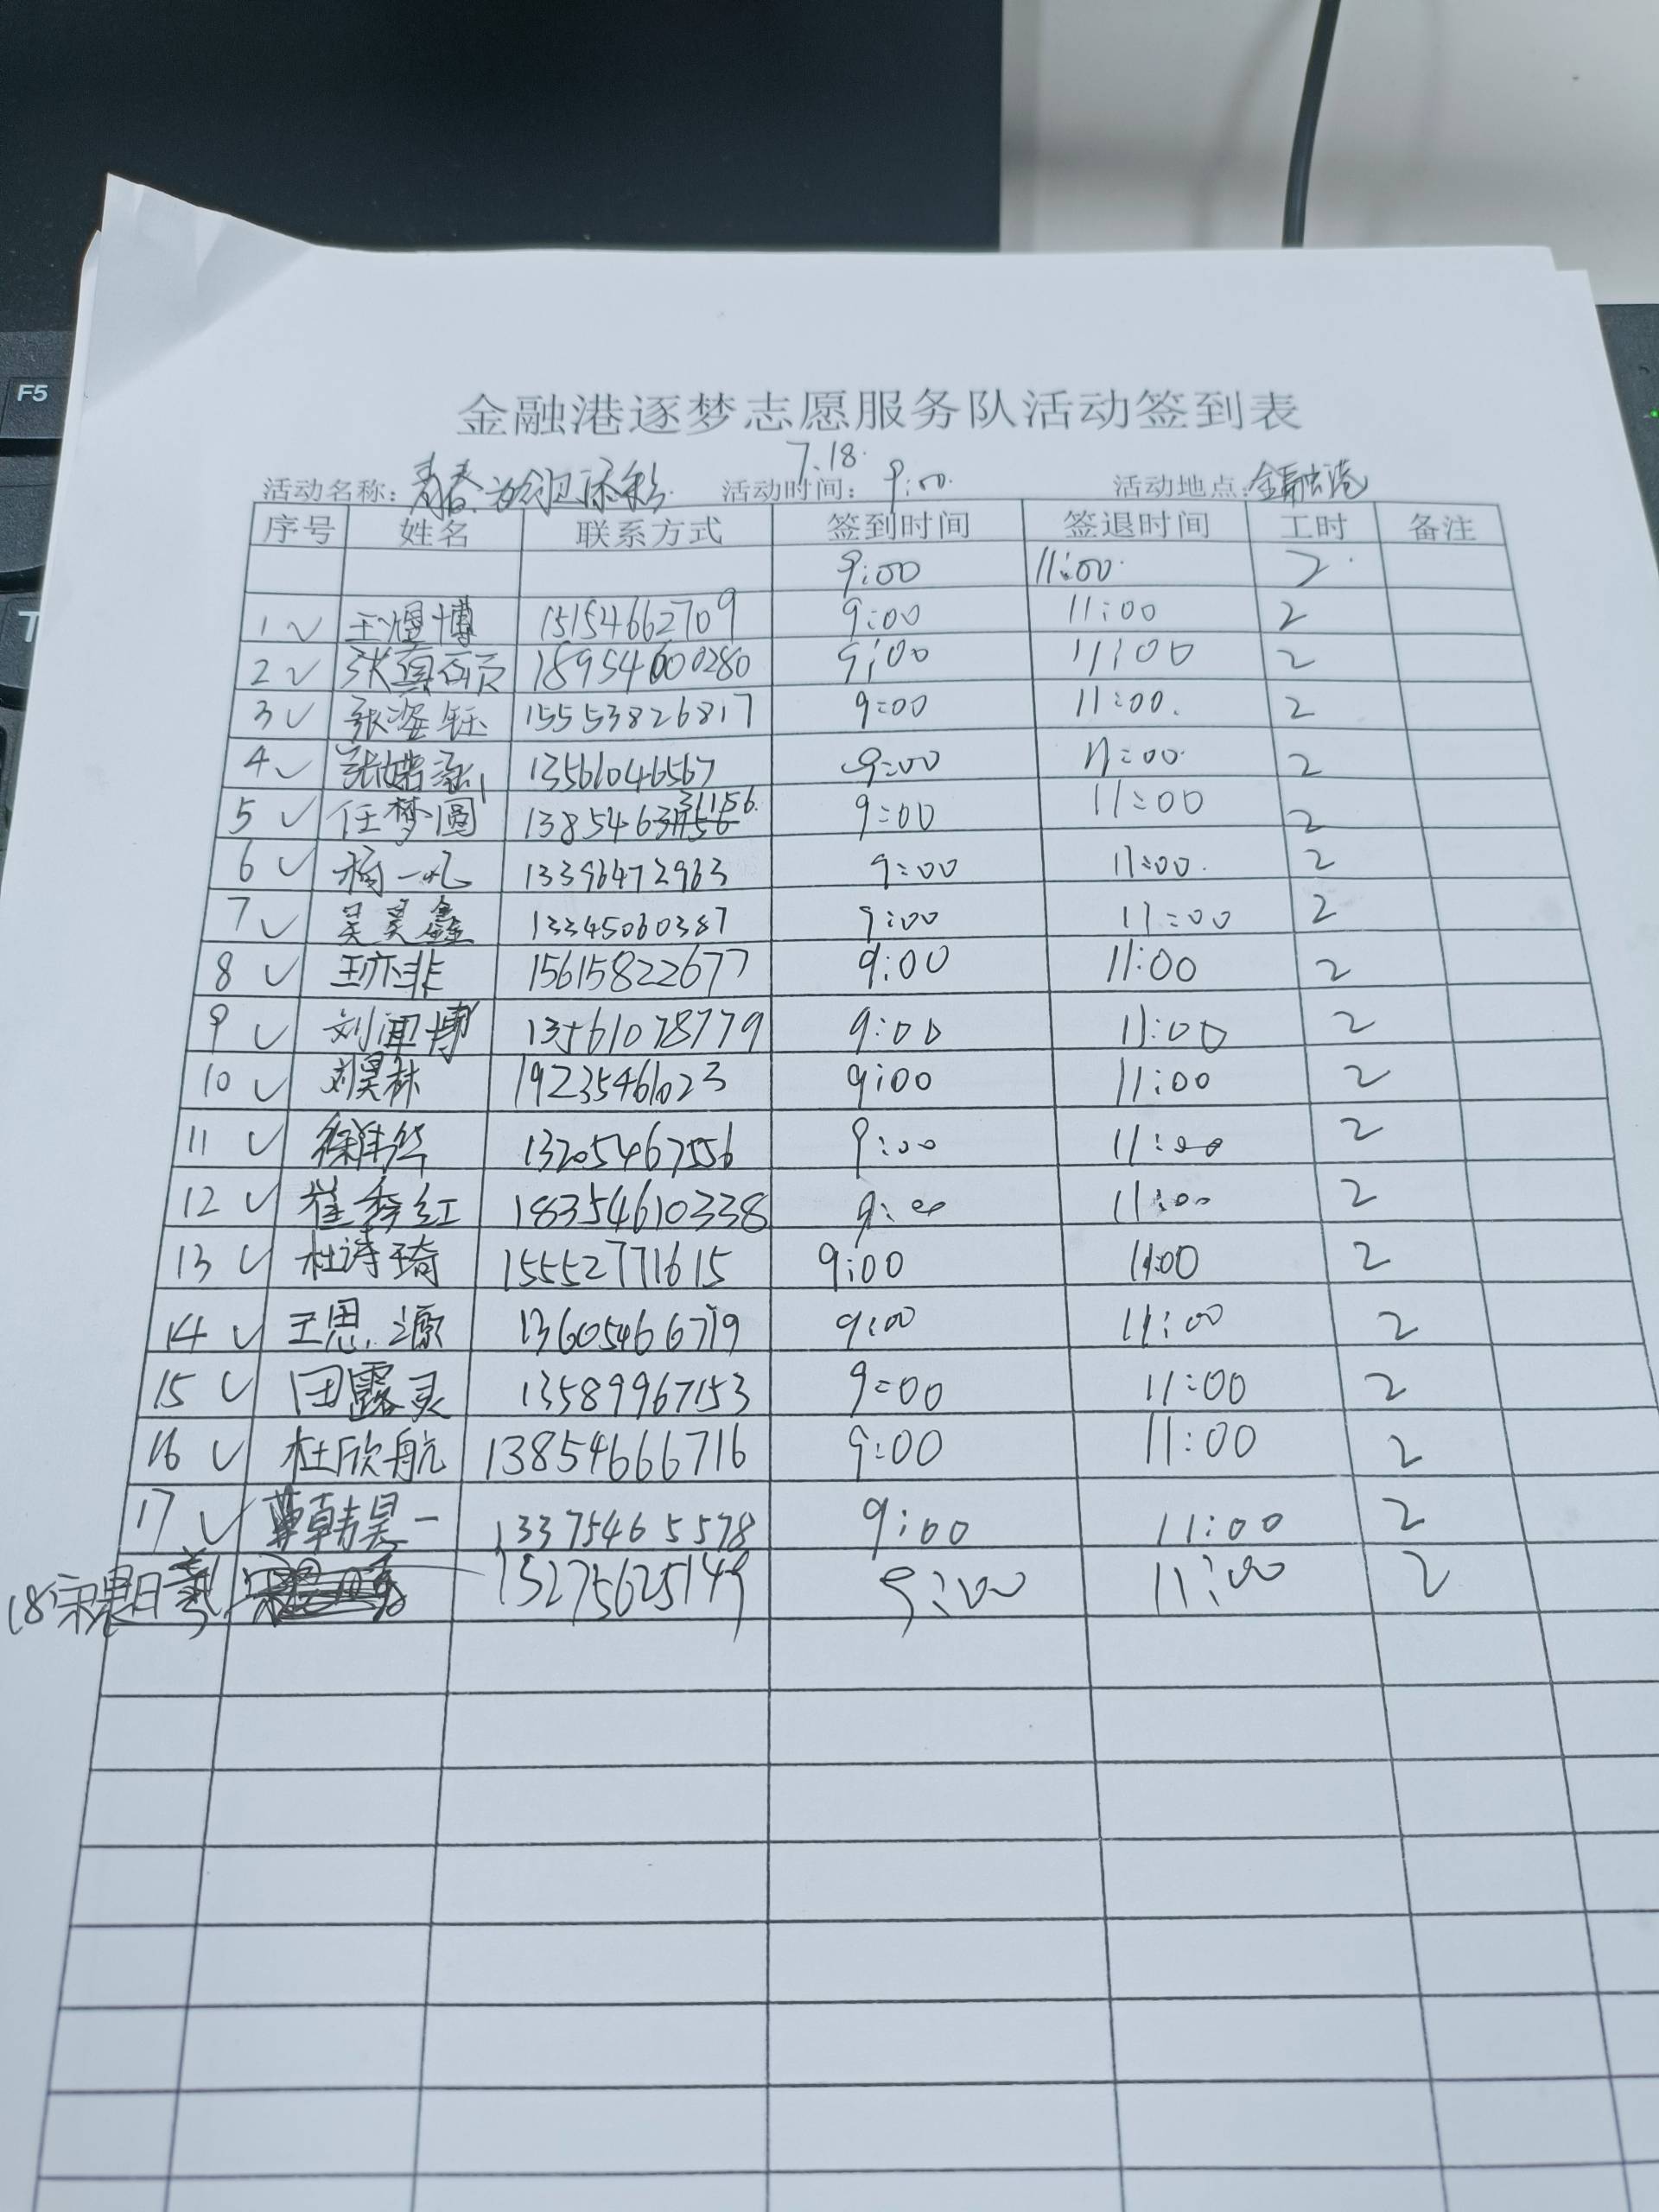 F5
T
金融港逐梦志愿服务队活动签到表
7.18.
活动名称: 青春为创卫添彩. 活动时间: 9:00. 活动地点: 金融港
序号 姓名 联系方式 签到时间 签退时间 工时 备注
9:00 11:00. 2.
1 ✓ 王煜博 15154662709 9:00 11:00 2
2 ✓ 张 18954600280 9:00 11:00 2
3 ✓ 张姿钰 15553826817 9:00 11:00. 2
4 ✓ 张婼涵 13561046567 9:00 11:00. 2
5 ✓ 任梦圆 13854631156. 9:00 11:00 2
6 ✓ 杨一凡 13396472963 9:00 11:00. 2
7 ✓ 吴昊鑫 13345060387 9:00 11:00 2
8 ✓ 王亦非 15615822677 9:00 11:00 2
9 ✓ 刘闻博 13561078779 9:00 11:00 2
10 ✓ 刘昊林 19235461023 9:00 11:00 2
11 ✓ 徐 13205467556 9:00 11:00 2
12 ✓ 崔秀红 18354610338 9:00 11:00 2
13 ✓ 杜诗琦 15552771615 9:00 11:00 2
14 ✓ 王思源 13605466719 9:00 11:00 2
15 ✓ 田露灵 13589967153 9:00 11:00 2
16 ✓ 杜欣航 13854666716 9:00 11:00 2
17 ✓ 韩昊一 13375465578 9:00 11:00 2
18 宋晨曦 15275625149 9:00 11:00 2